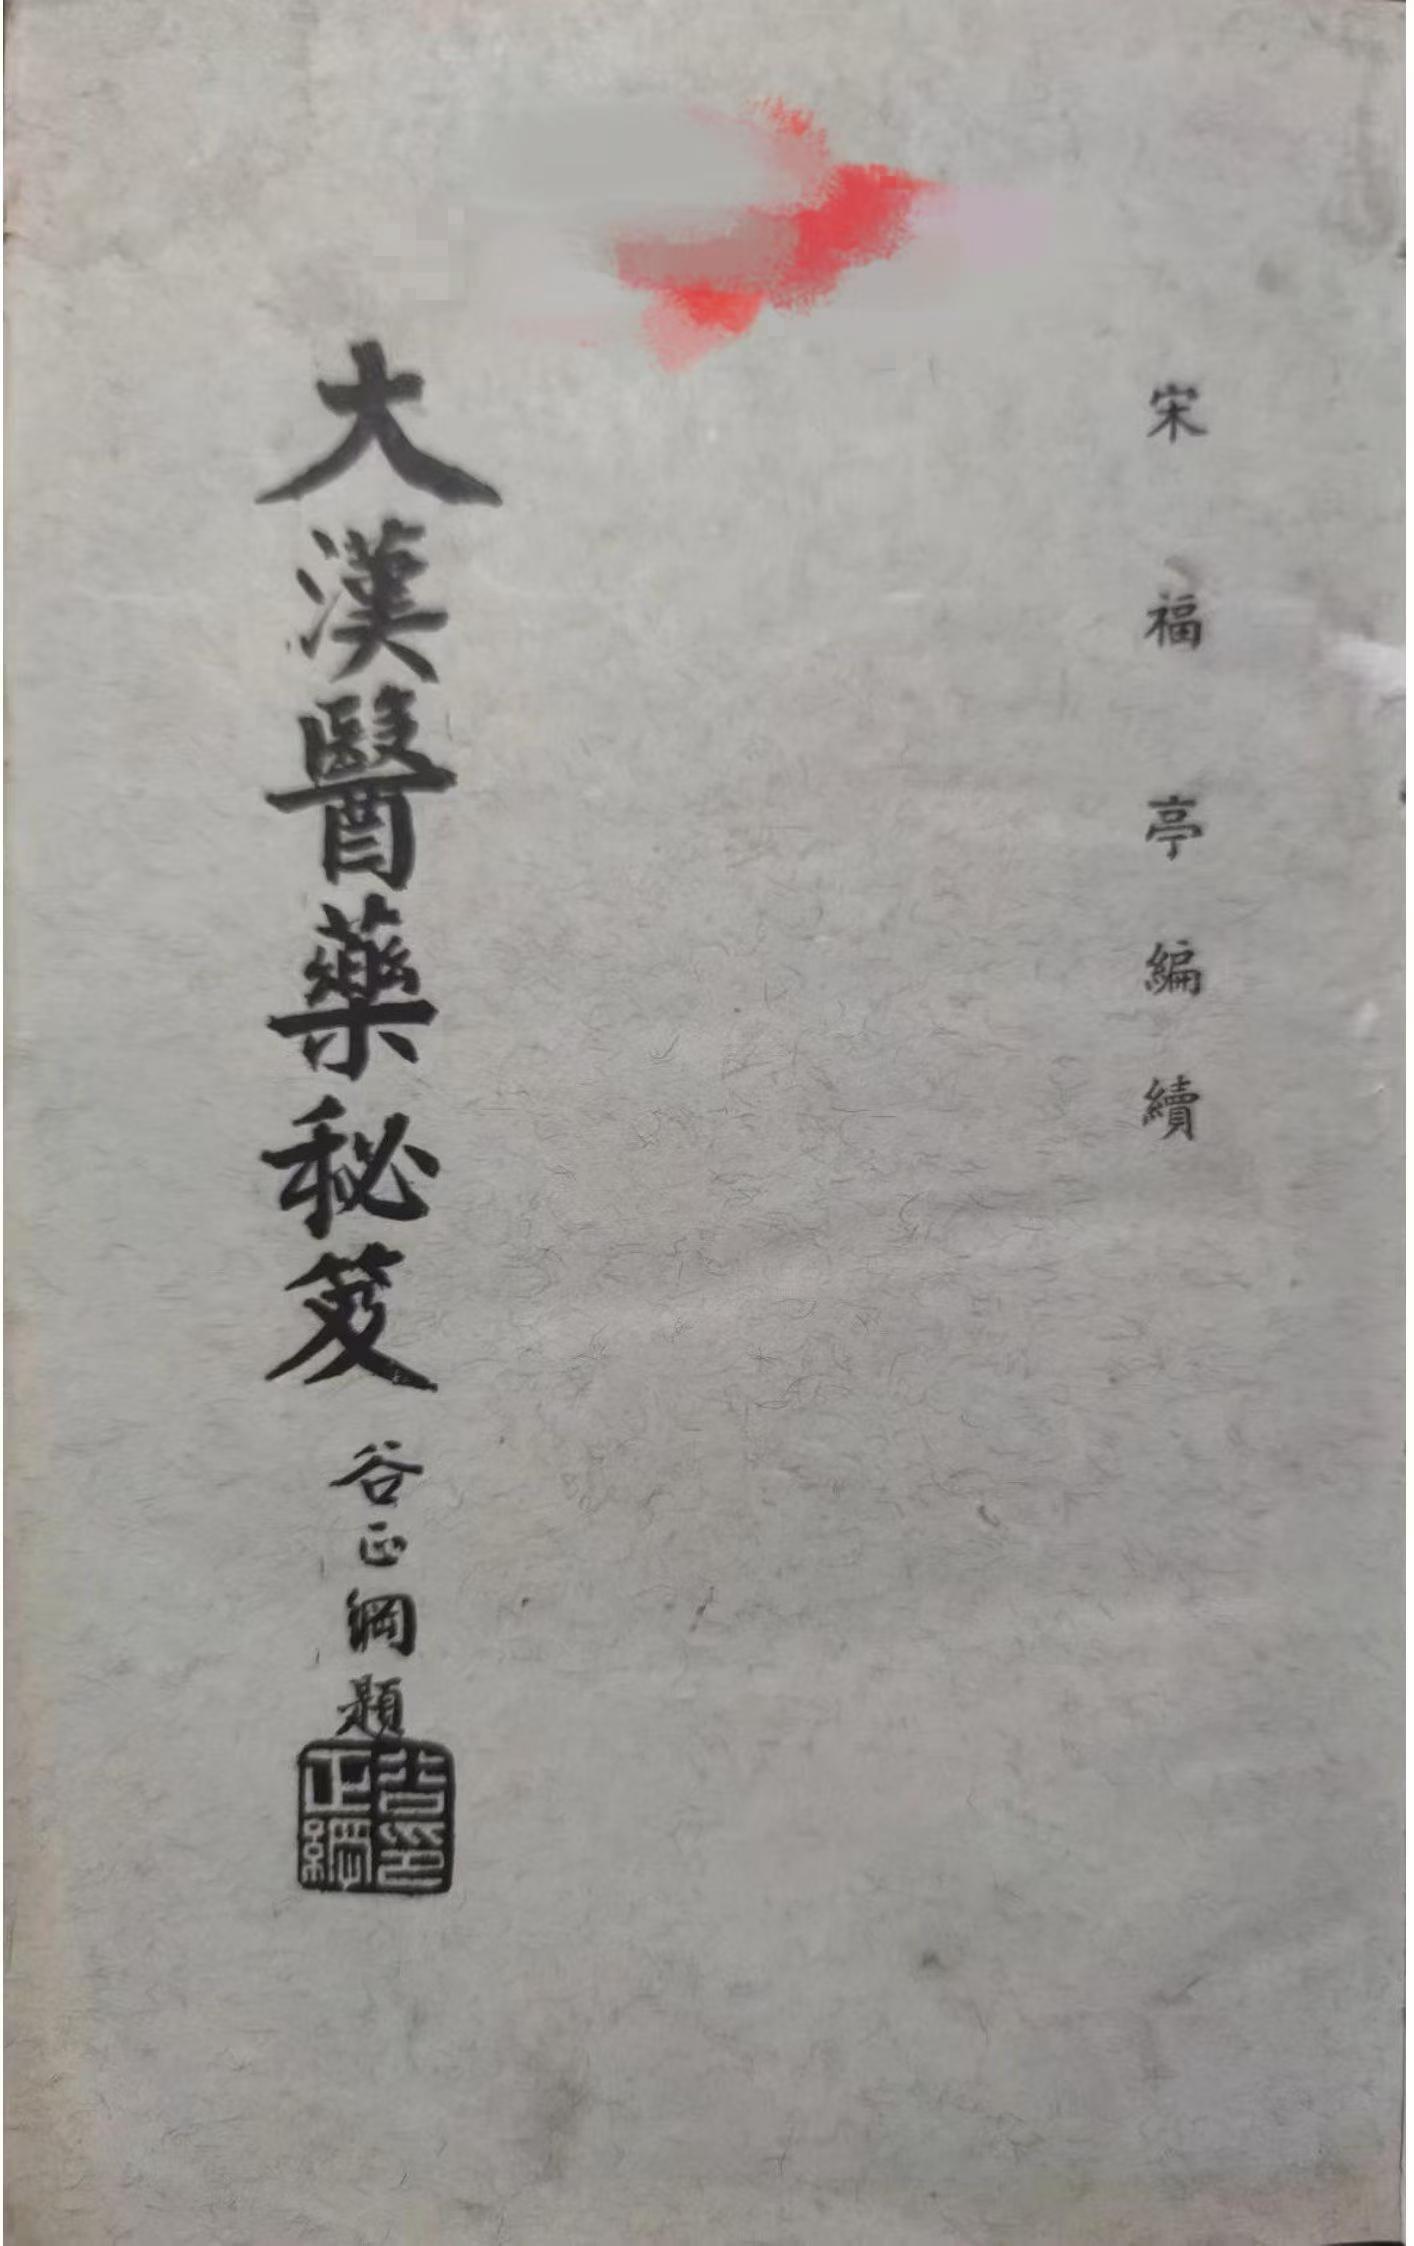 宋福亭編續
大漢醫藥秘笈
谷正綱題
谷印正綱